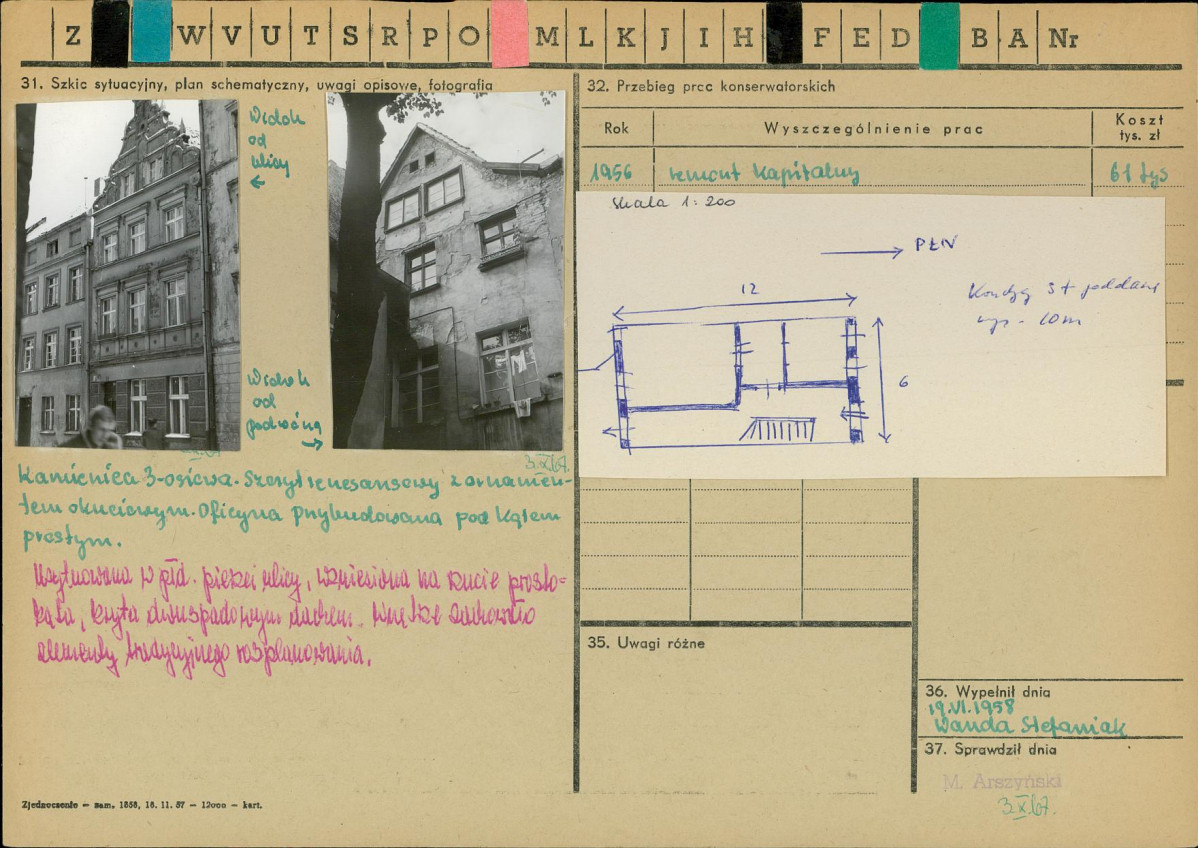 Z W V U T S R P O M L K J I H F E D B A Nr
31. Szkic sytuacyjny, plan schematyczny, uwagi opisowe, fotografia
Widok
od
ulicy
←
Widok
od
podwórza
→
3.X.67.
Kamienica 3-osiowa. Szczyt renesansowy z ornamen-
tem okuciowym. Oficyna przybudowana pod kątem
prostym.
Usytuowana w płd. pierzei ulicy, wzniesiona na rzucie prosto=
kąta, kryta dwuspadowym dachem. Wnętrze zachowało
elementy tradycyjnego rozplanowania.
Zjednoczenie — zam. 1858, 16. 11. 57 — 12000 — kart.
32. Przebieg prac konserwatorskich
Rok Wyszczególnienie prac Koszt
tys. zł
1956 remont kapitalny 61 tys
Skala 1:200
PŁN
12
6
Kondyg 3 + poddasze
wys - 10m
35. Uwagi różne
36. Wypełnił dnia
19.VI.1958
Wanda Stefaniak
37. Sprawdził dnia
M. Arszyński
3.X.67.